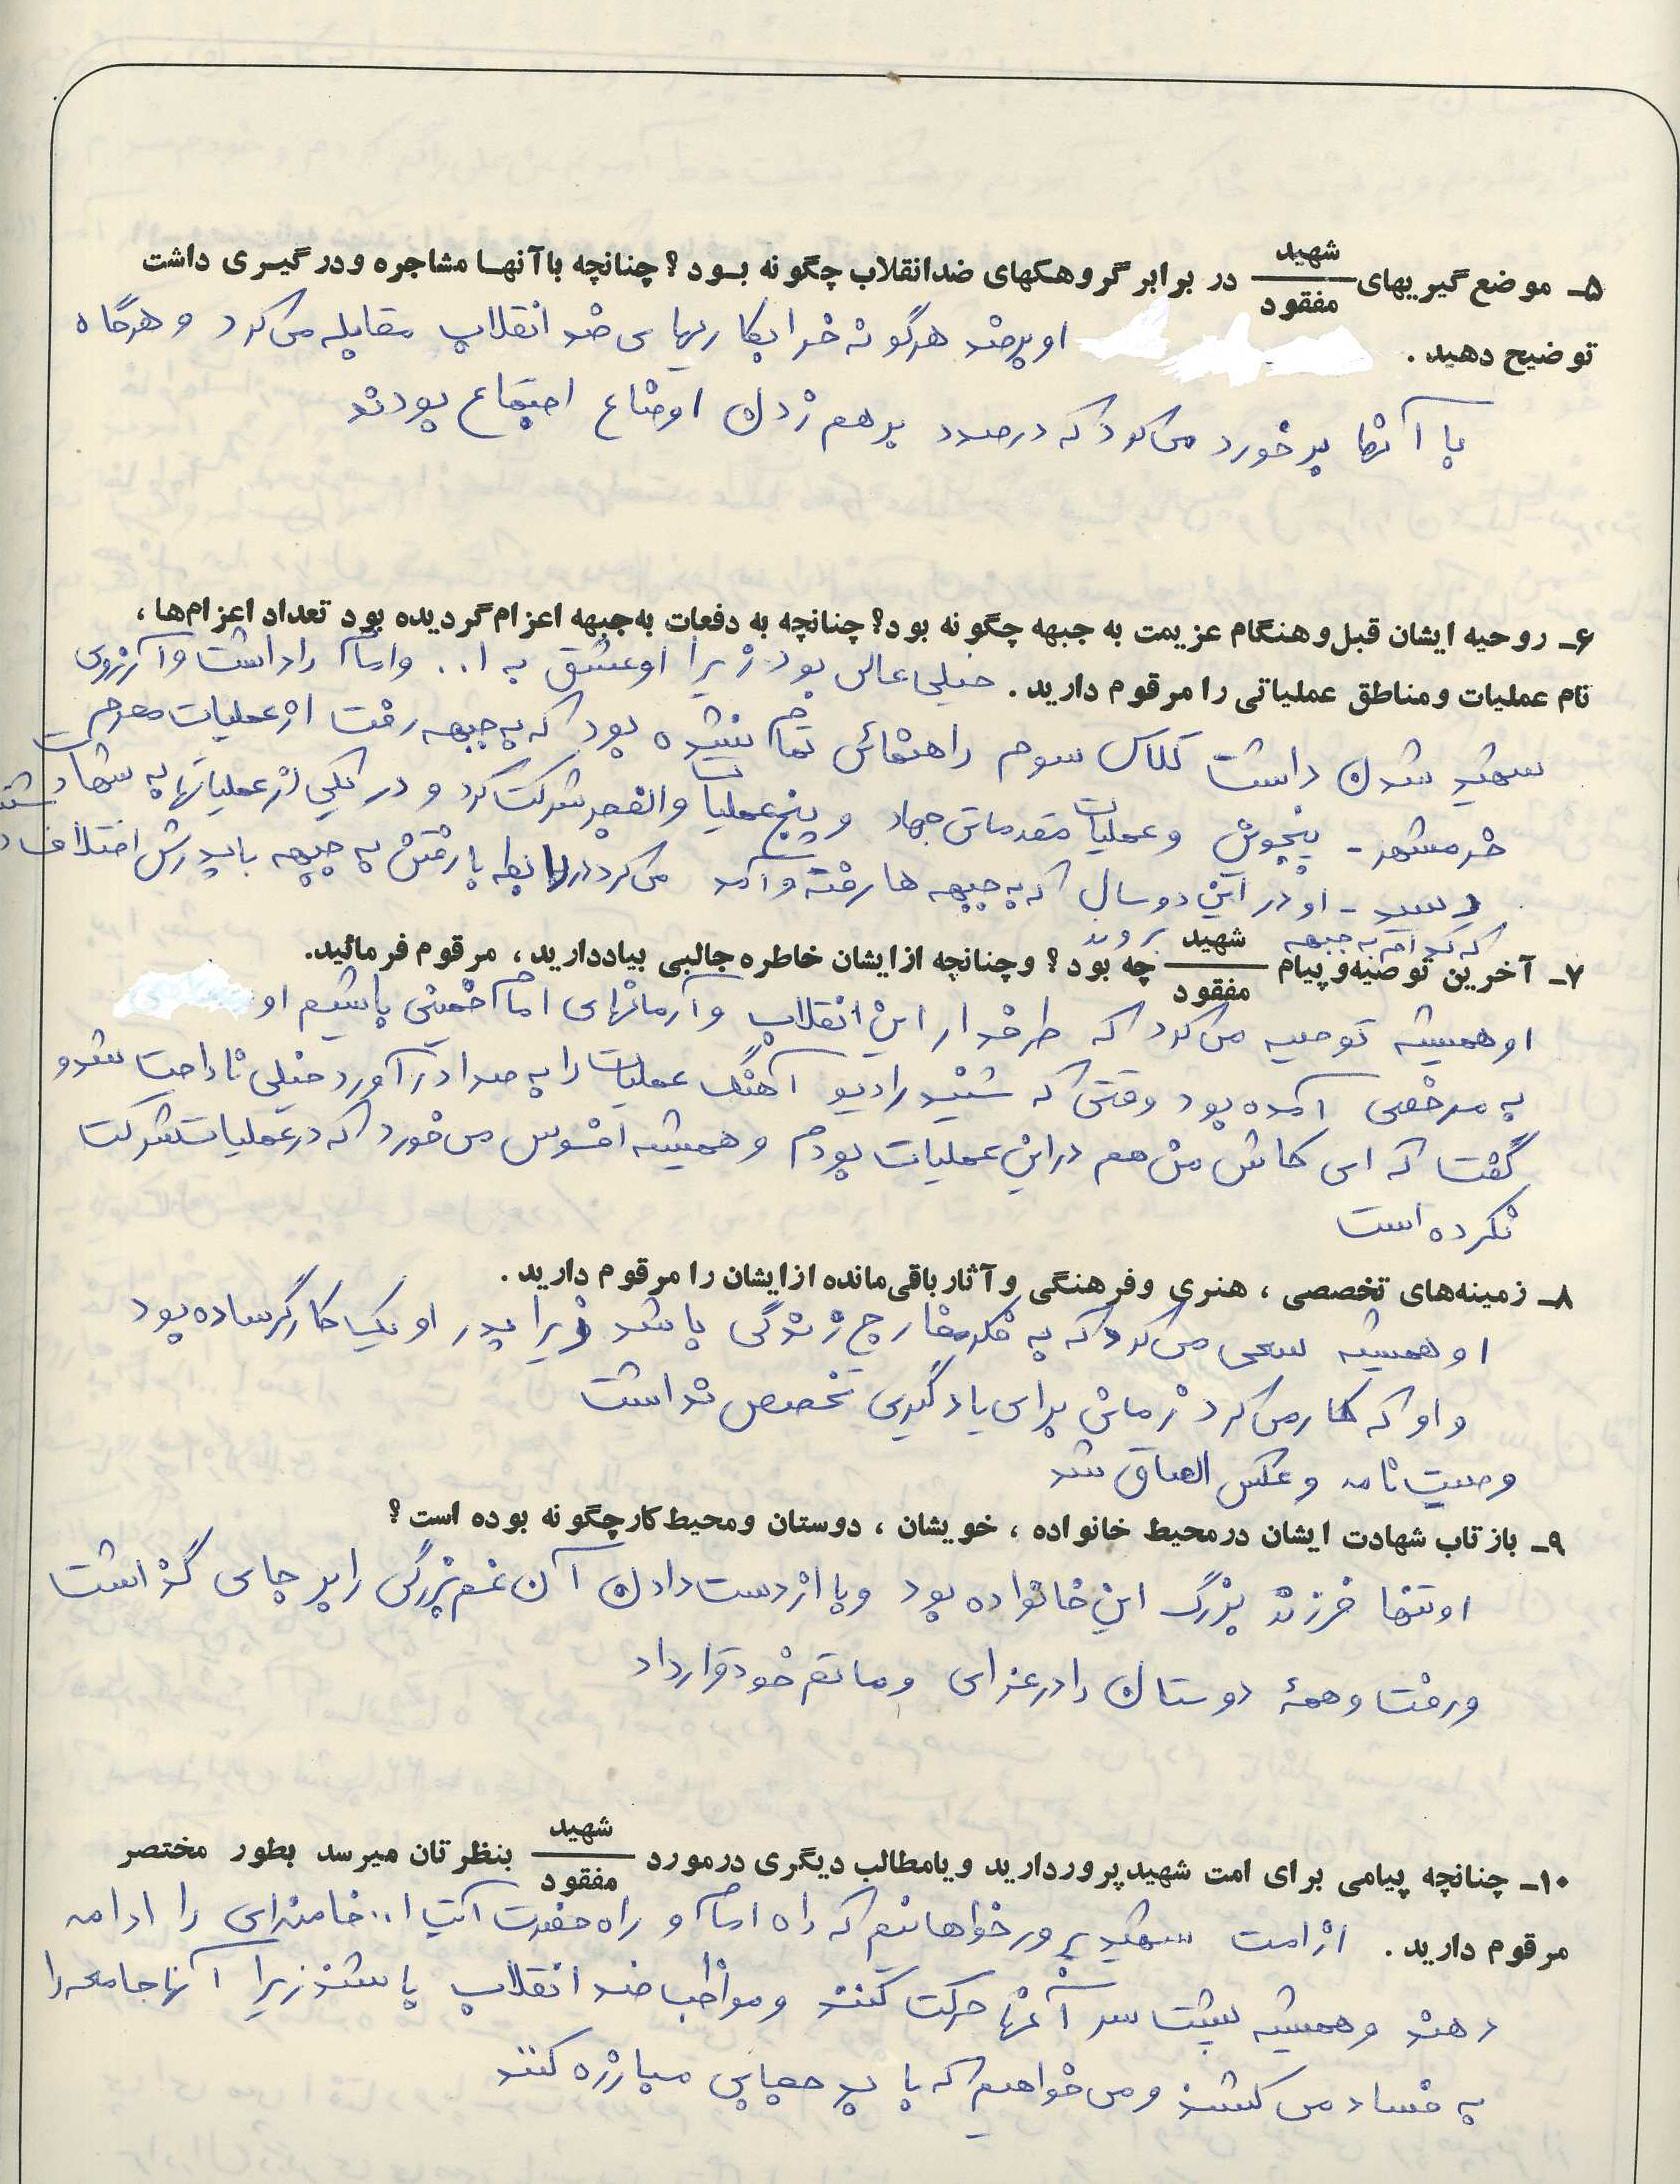 ۵ـ موضع گیریهای شهید / مفقود در برابر گروهکهای ضدانقلاب چگونه بود؟ چنانچه باآنها مشاجره و درگیری داشت
توضیح دهید. او برضد هرگونه خرابکاریهای ضد انقلاب مقابله می‌کرد و هرگاه
با آنها برخورد می‌کرد که درصدد برهم زدن اوضاع اجتماع بودند
۶ـ روحیه ایشان قبل و هنگام عزیمت به جبهه چگونه بود؟ چنانچه به دفعات به جبهه اعزام گردیده بود تعداد اعزام‌ها،
نام عملیات و مناطق عملیاتی را مرقوم دارید. خیلی عالی بود زیرا او عشق به ا... و امام را داشت و آرزوی
شهید شدن داشت کلاس سوم راهنمائی تمام نشده بود که به جبهه رفت از عملیات محرم
خرمشهر - پنجوین و عملیات مقدماتی جهاد و پنج عملیات والفجر شرکت کرد و در یکی از عملیاتها به شهادت
رسید - او در این دو سال که به جبهه ها رفت و آمد می‌کرد در رابطه با رفتن به جبهه با پدرش اختلاف داشتند
که کدام به جبهه بروند
۷ـ آخرین توصیه و پیام شهید / مفقود چه بود؟ و چنانچه از ایشان خاطره جالبی بیاد دارید، مرقوم فرمائید.
او همیشه توصیه می‌کرد که طرفدار این انقلاب و آرمانهای امام خمینی باشیم او
به مرخصی آمده بود وقتی که شنید رادیو آهنگ عملیات را به صدا در آورد خیلی ناراحت شد و
گفت که ای کاش من هم در این عملیات بودم و همیشه افسوس می‌خورد که در عملیات شرکت
نکرده است
۸ـ زمینه‌های تخصصی، هنری و فرهنگی و آثار باقی‌مانده از ایشان را مرقوم دارید.
او همیشه سعی می‌کرد که به فکر مخارج زندگی باشد زیرا پدر او یک کارگر ساده بود
و او که کار می‌کرد زمانی برای یادگیری تخصص نداشت
وصیت نامه و عکس الصاق شد
۹ـ بازتاب شهادت ایشان در محیط خانواده، خویشان، دوستان و محیط کار چگونه بوده است؟
او تنها فرزند بزرگ این خانواده بود و با از دست دادن آن غم بزرگی را بر جای گذاشت
و رفت و همهٔ دوستان را در عزای و ماتم خود قرار داد
۱۰ـ چنانچه پیامی برای امت شهید پرور دارید و یا مطالب دیگری در مورد شهید / مفقود بنظرتان میرسد بطور مختصر
مرقوم دارید. از امت شهید پرور خواهانیم که راه امام و راه حضرت آیت ا... خامنه‌ای را ادامه
دهند و همیشه پشت سر آنها حرکت کنند و مواظب ضد انقلاب باشند زیرا آنها جامعه را
به فساد می کشند و می خواهیم که با بد حجابی مبارزه کنند